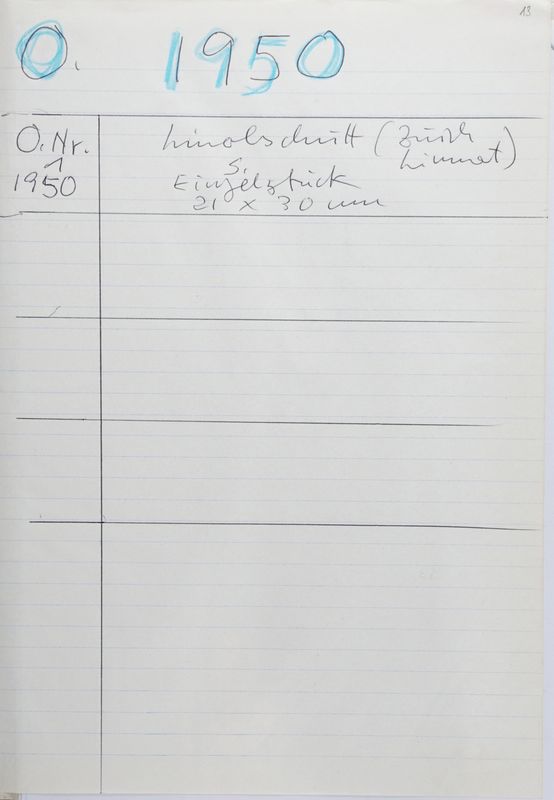 13
O. 1950
O.Nr. Linolschnitt (Zürich
1 Limmat)
1950 S.
Einzelstück
21 x 30 mm